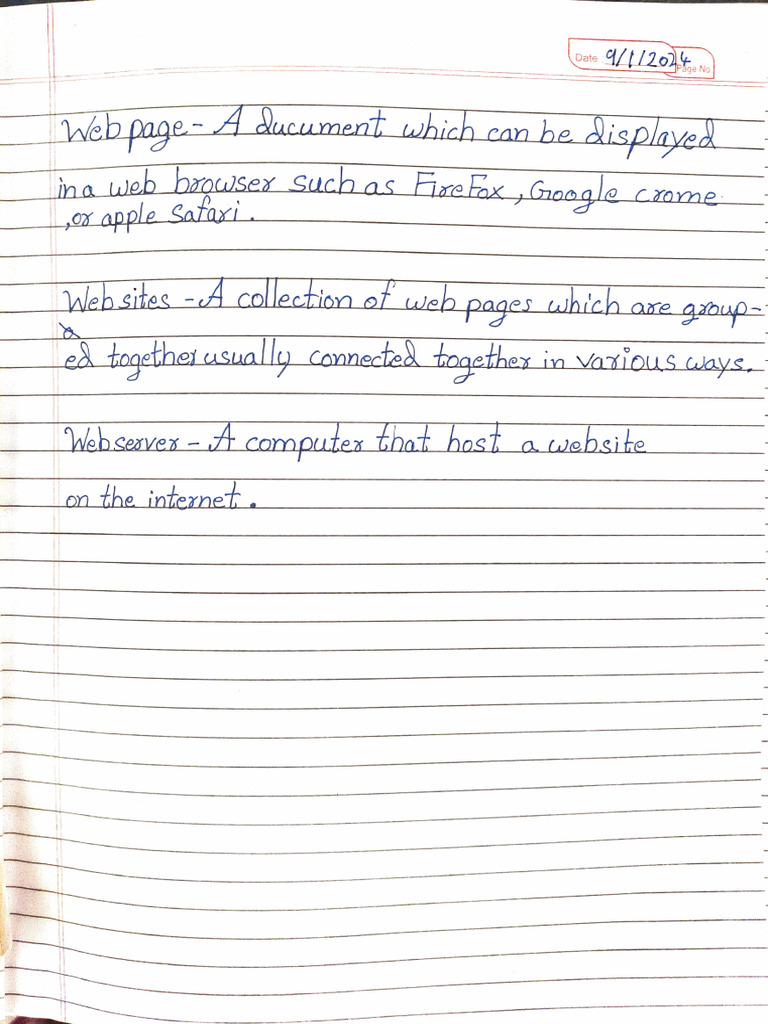 Date 9/1/2024
Page No
Web page - A ducument which can be displayed
in a web browser such as FireFox, Google crome
, or apple Safari.
Web sites - A collection of web pages which are group-
ed together usually connected together in various ways.
Webserver - A computer that host a website
on the internet.